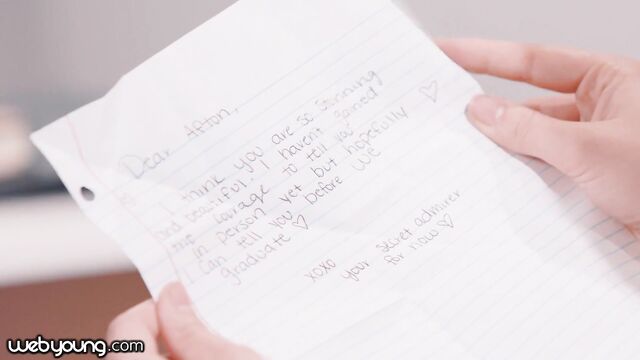 Dear Afton,
I think you are so stunning
and beautiful. I haven't gained
the courage to tell you
in person yet but hopefully ♡
I can tell you before we
graduate ♡
xoxo your secret admirer
for now ♡
webyoung.com